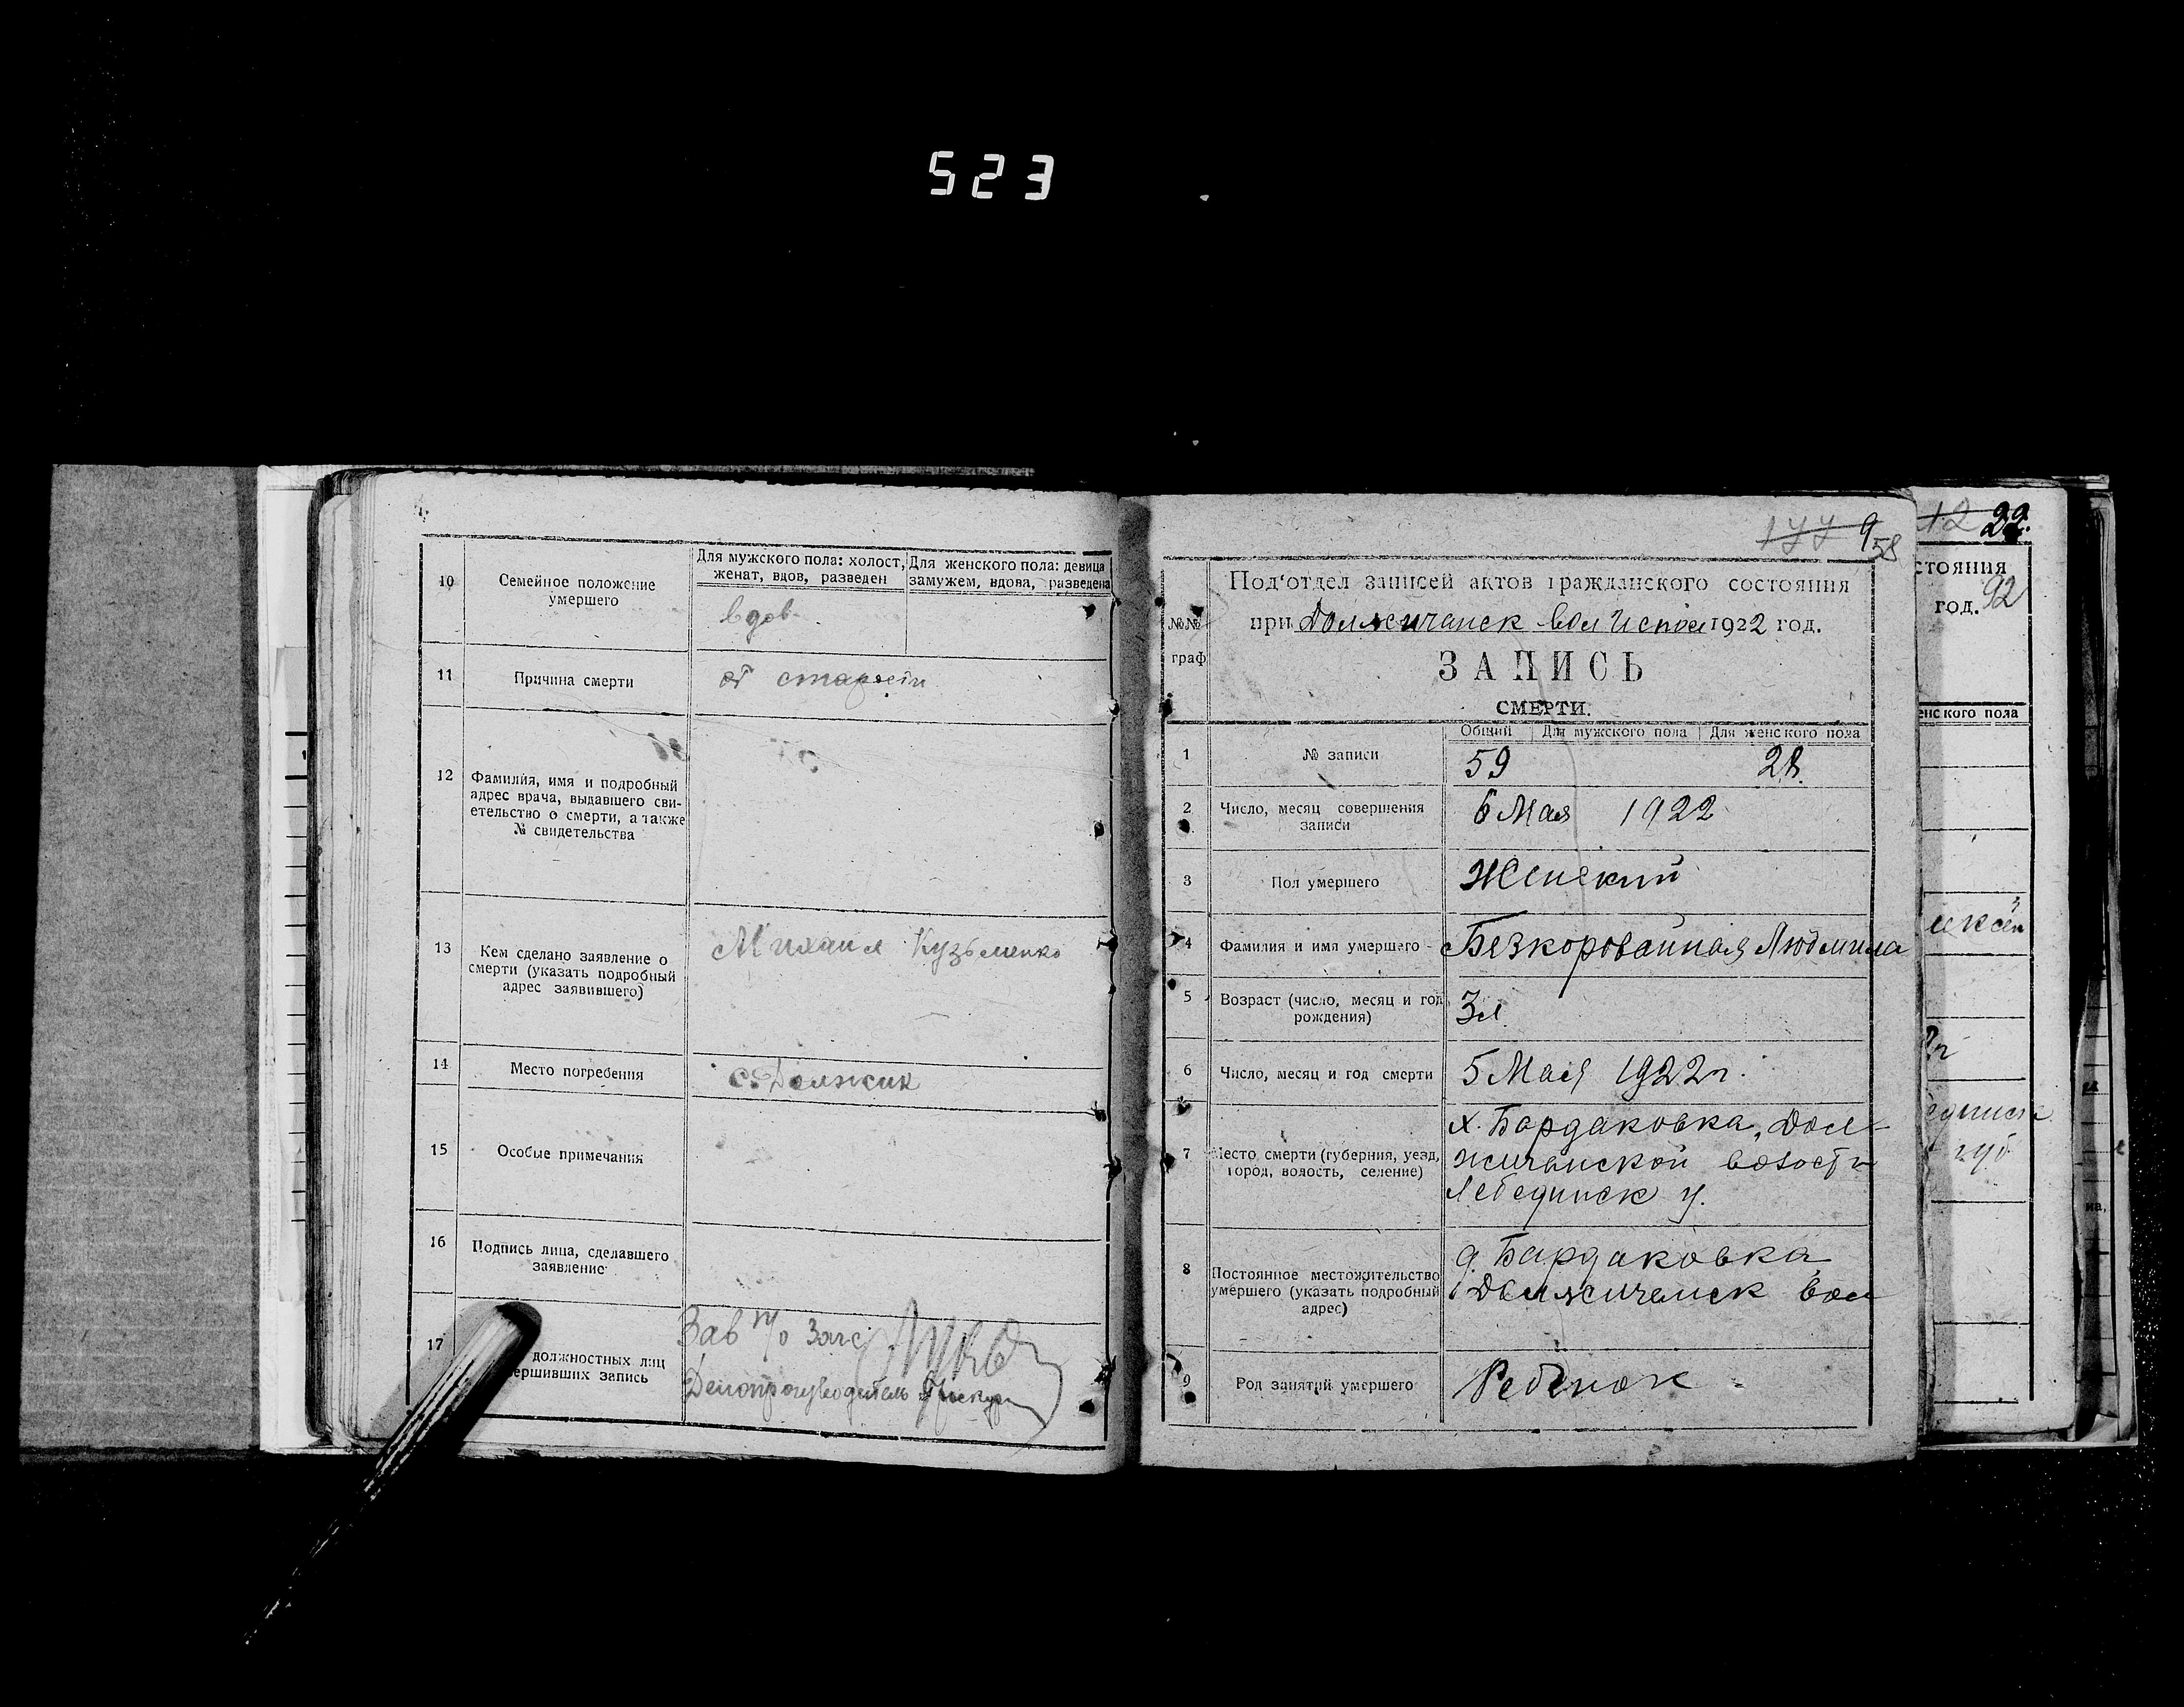 523
10
Семейное положение
умершего
Для мужского пола: холост,
женат, вдов, разведен
Для женского пола: девица
замужем, вдова, разведена
вдов
11
Причина смерти
от старости
12
Фамилия, имя и подробный
адрес врача, выдавшего сви-
етельство о смерти, а также
№ свидетельства
13
Кем сделано заявление о
смерти (указать подробный
адрес заявившего)
Михаил Кузьменко
14
Место погребения
с. Должик
15
Особые примечания
16
Подпись лица, сделавшего
заявление
17
должностных лиц
ершивших запись
Зав п/о Загс
Делопроизводитель
177 9
58
№№
граф
Под'отдел записей актов гражданского состояния
при Должичанск вол Испол 1922 год.
ЗАПИСЬ
СМЕРТИ.
Общий Для мужского пола Для женского пола
1
№ записи
59 28.
2
Число, месяц совершения
записи
6 Мая 1922
3
Пол умершего
Женский
4
Фамилия и имя умершего
Безкоровайная Людмила
5
Возраст (число, месяц и год
рождения)
3 л
6
Число, месяц и год смерти
5 Мая 1922 г.
7
Место смерти (губерния, уезд,
город, волость, селение)
х. Бардаковка, Дол-
жичанской волости
Лебединск у.
8
Постоянное местожительство
умершего (указать подробный
адрес)
д. Бардаковка
Должичанск вол
9
Род занятий умершего
Ребенок
12 22.
стояния
год. 92
енского пола
губ